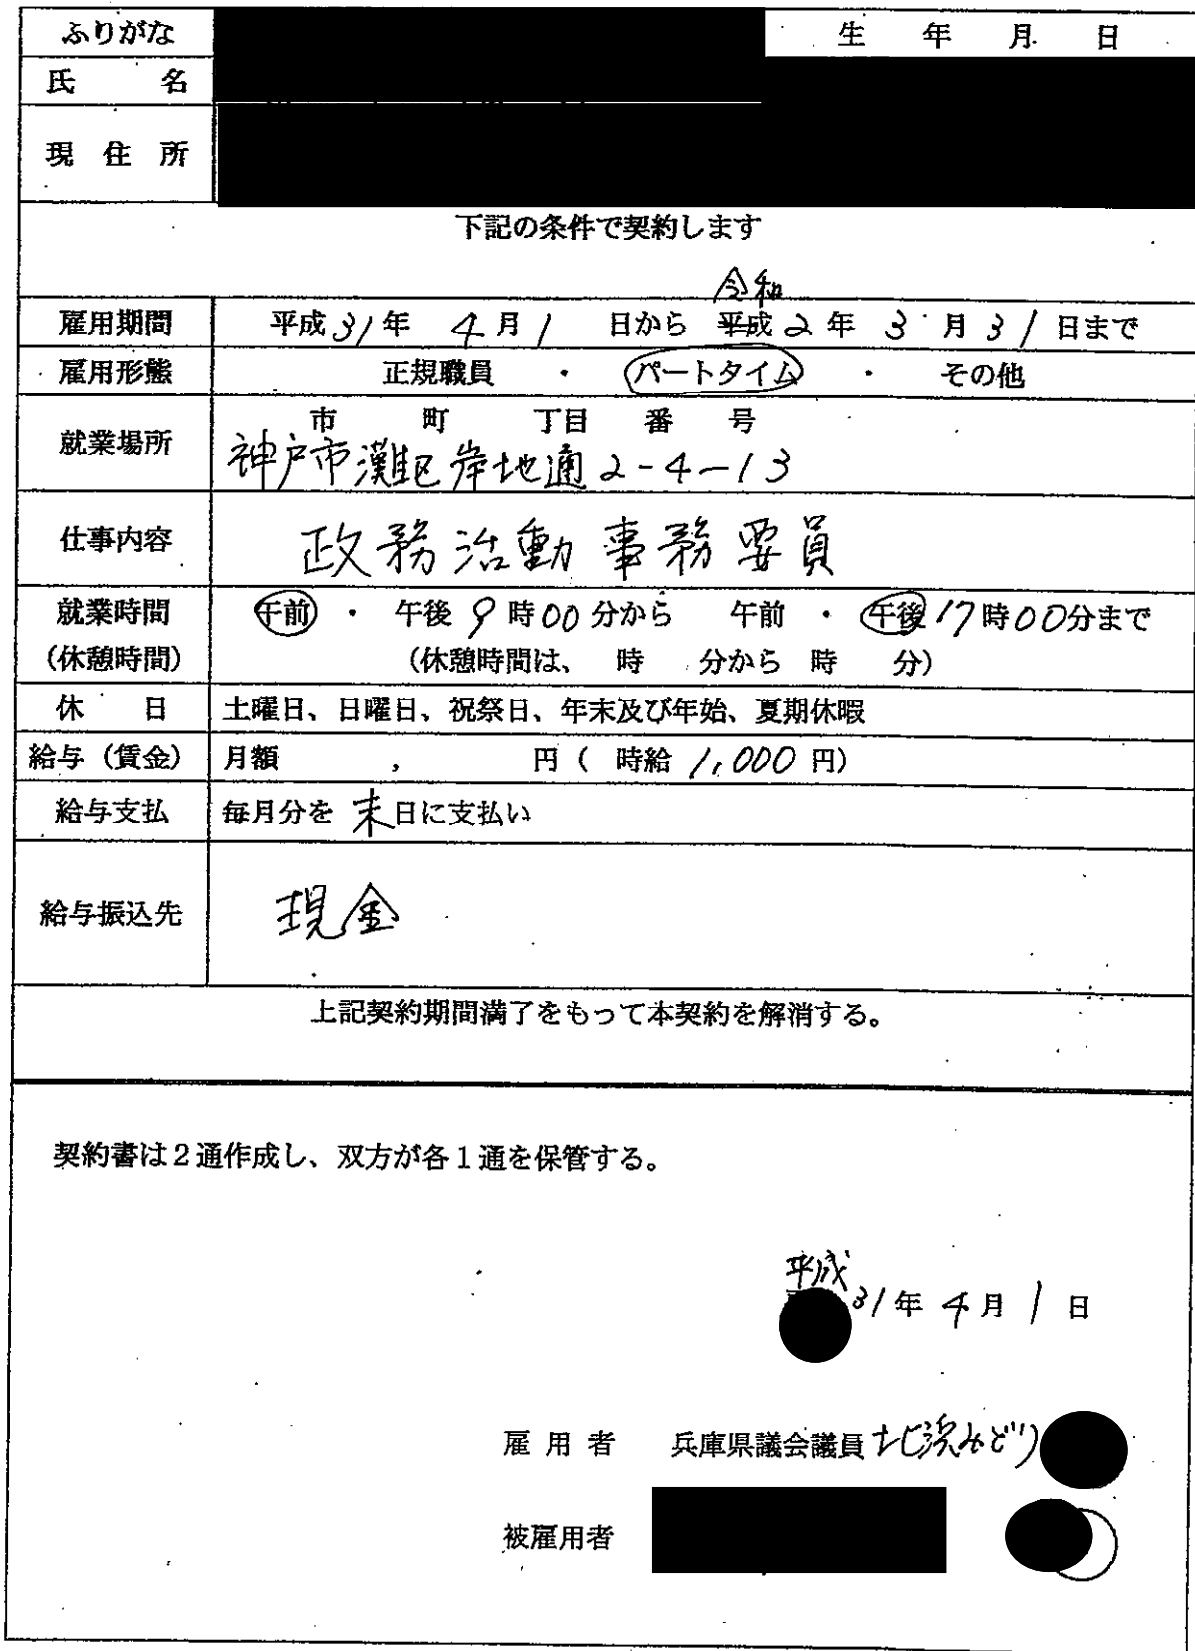 ふりがな 生年月日
氏名
現住所
下記の条件で契約します
令和
雇用期間 平成31年 4月1 日から 平成2年 3月31日まで
雇用形態 正規職員 ・ パートタイム ・ その他
市 町 丁目 番 号
就業場所 神戸市灘区岸地通2-4-13
仕事内容 政務活動事務要員
就業時間 午前 ・ 午後 9時00分から 午前 ・ 午後17時00分まで
(休憩時間) (休憩時間は、 時 分から 時 分)
休日 土曜日、日曜日、祝祭日、年末及び年始、夏期休暇
給与(賃金) 月額 , 円( 時給 1,000円)
給与支払 毎月分を 末日に支払い
給与振込先 現金
上記契約期間満了をもって本契約を解消する。
契約書は2通作成し、双方が各1通を保管する。
平成
31年 4月 1日
雇用者 兵庫県議会議員 北浜みどり
被雇用者